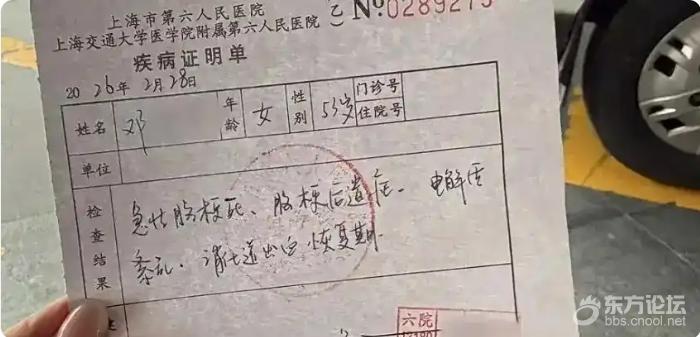 上海市第六人民医院
上海交通大学医学院附属第六人民医院
乙 No.0289275
疾病证明单
2026年2月28日
姓名 邓 年龄 女 性别 53岁 门诊号 住院号
单位
检查结果
急性脑梗死、脑梗后遗症、电解质
紊乱、消化道出血恢复期
六院
东方论坛
bbs.cnool.net